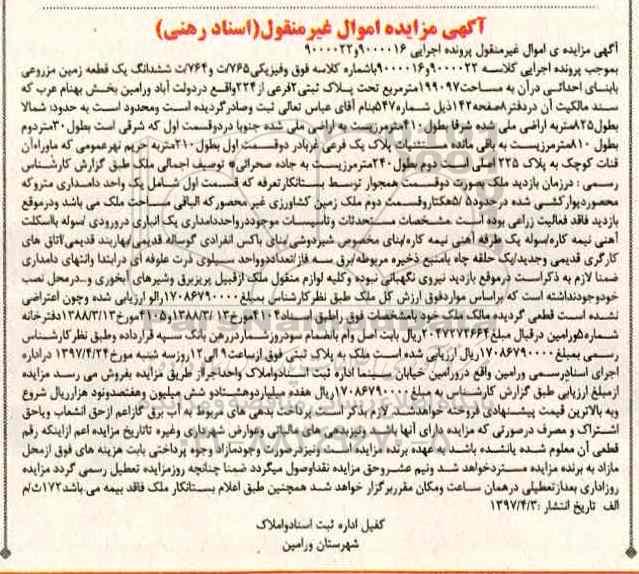 آگهی مزایده اموال غیرمنقول(اسناد رهنی)
آگهی مزایده ی اموال غیرمنقول پرونده اجرایی ۹۰۰۰۰۱۶و۹۰۰۰۰۲۲
بموجب پرونده اجرایی کلاسه ۹۰۰۰۰۲۲و۹۰۰۰۰۱۶باشماره کلاسه فوق وفیزیکی۷۶۵/ت و۷۶۴/ت ششدانگ یک قطعه زمین مزروعی
بابنای احداثی درآن به مساحت۱۹۹۰۹۷مترمربع تحت پلاک ثبتی۲فرعی از۲۲۴واقع دردولت آباد ورامین بخش بهنام عرب که
سند مالکیت آن دردفتر۸صفحه۱۴۲ذیل شماره۵۴۷بنام آقای عباس تعالی ثبت وصادرگردیده است ومحدود است به حدود: شمالا
بطول۸۲۵متربه اراضی ملی شده شرقا بطول۴۱۰مترمرزیست به اراضی ملی شده جنوبا دردوقسمت اول که شرقی است بطول۳۰متردوم
بطول ۸۱۰مترمرزیست به باقی مانده مستثنیات پلاک یک فرعی غربادر دوقسمت اول بطول۲۱۰متربه حریم نهرعمومی که ماوراءآن
قنات کوچک به پلاک ۲۲۵ اصلی است دوم بطول۲۴۰مترمرزیست به جاده صحرائی* توصیف اجمالی ملک طبق گزارش کارشناس
رسمی : درزمان بازدید ملک بصورت دوقسمت همجوار توسط بستانکارتعرفه که قسمت اول شامل یک واحد دامداری متروکه
محصوردیوارکشی شده درحدود۵/ ۵هکتاروقسمت دوم ملک زمین کشاورزی غیر محصورکه الباقی مساحت ملک می باشد ودرموقع
بازدید فاقد فعالیت زراعی بوده است .مشخصات مستحدثات وتاسیسات موجوددرواحددامداری یک انباری درورودی /سوله بااسکلت
آهنی نیمه کاره/سوله یک طرفه آهنی نیمه کاره/بنای مخصوص شیردوشی/بنای باکس انفرادی گوساله قدیمی/بهاربند قدیمی/اتاق های
کارگری قدیمی وجدید/یک حلقه چاه بامنبع ذخیره مربوطه/برق سه فاز/تعداددوواحد سیلوی ذرت علوفه ای درابتدا وانتهای دامداری
ضمنا لازم به ذکراست درموقع بازدید نیروی نگهبانی نبوده وکلیه لوازم منقول ملک ازقبیل پریزبرق وشیرهای آبخوری و..درمحل نصب
خودوجودنداشته است که براساس مواردفوق ارزش کل ملک طبق نظرکارشناس بمبلغ۱۷۰۸۶۷۹۰۰۰۰ریالو ارزیابی شده وچون اعتراضی
نشده است قطعی گردیده مالک ملک خود بامشخصات فوق راطبق اسناد۴۱۰۴مورخ۱۳۸۸/۳/۱۳و۴۱۰۵مورخ۱۳۸۸/۳/۱۳دفترخانه
شماره۵ورامین درقبال مبلغ۲۰۴۷۲۷۲۶۶۴ریال بابت اصل وام بانضمام سودروزشماردررهن بانک سپه قرارداده وطبق نظرکارشناس
رسمی بمبلغ۱۷۰۸۶۷۹۰۰۰۰ریال ارزیابی شده است ملک به پلاک ثبتی فوق ازساعت۹ الی۱۲روزسه شنبه مورخ۱۳۹۷/۴/۲۴ دراداره
اجرای اسنادرسمی ورامین واقع درورامین خیابان سینما اداره ثبت اسنادواملاک واحداجرااز طریق مزایده بفروش می رسد مزایده
ازمبلغ ارزیابی طبق گزارش کارشناس به مبلغ۱۷۰۸۶۷۹۰۰۰۰ریال هفده میلیاردوهشتادو شش میلیون وهفتصدونود هزارریال شروع
وبه بالاترین قیمت پیشنهادی فروخته خواهدشد. لازم بذکر است پرداخت بدهی های مربوط به آب برق گازاعم ازحق انشعاب ویاحق
اشتراک و مصرف درصورتی که مزایده دارای آنها باشد ونیزبدهی های مالیاتی وعوارض شهرداری وغیره تاتاریخ مزایده اعم ازاینکه رقم
قطعی آن معلوم شده یانشده باشد به عهده برنده مزایده است ونیزدرصورت وجودمازاد وجوه پرداختی بابت هزینه های فوق ازمحل
مازاد به برنده مزایده مستردخواهد شد ونیم عشروحق مزایده نقداوصول میگردد ضمنا چنانچه روزمزایده تعطیل رسمی گردد مزایده
روزاداری بعدازتعطیلی درهمان ساعت ومکان مقرربرگزار خواهد شد همچنین طبق اعلام بستانکار ملک فاقد بیمه می باشد۱۷۲/ث/م
الف تاریخ انتشار :۱۳۹۷/۴/۳
کفیل اداره ثبت اسنادواملاک
شهرستان ورامین